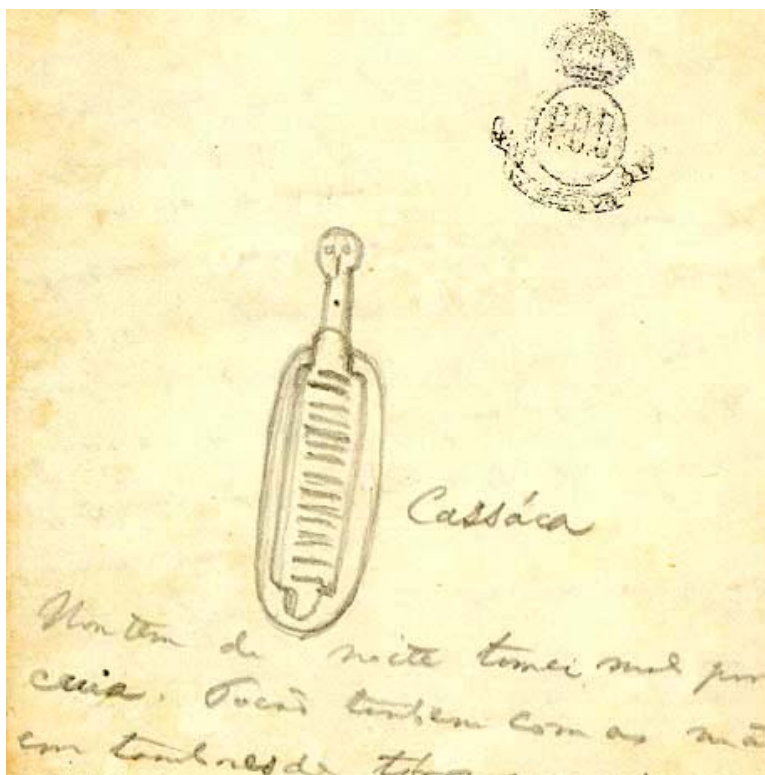 P.O.B
Cassáca
Hontem de noite tomei mel por
cuia. Tocão tambem com as mã
em tambores de